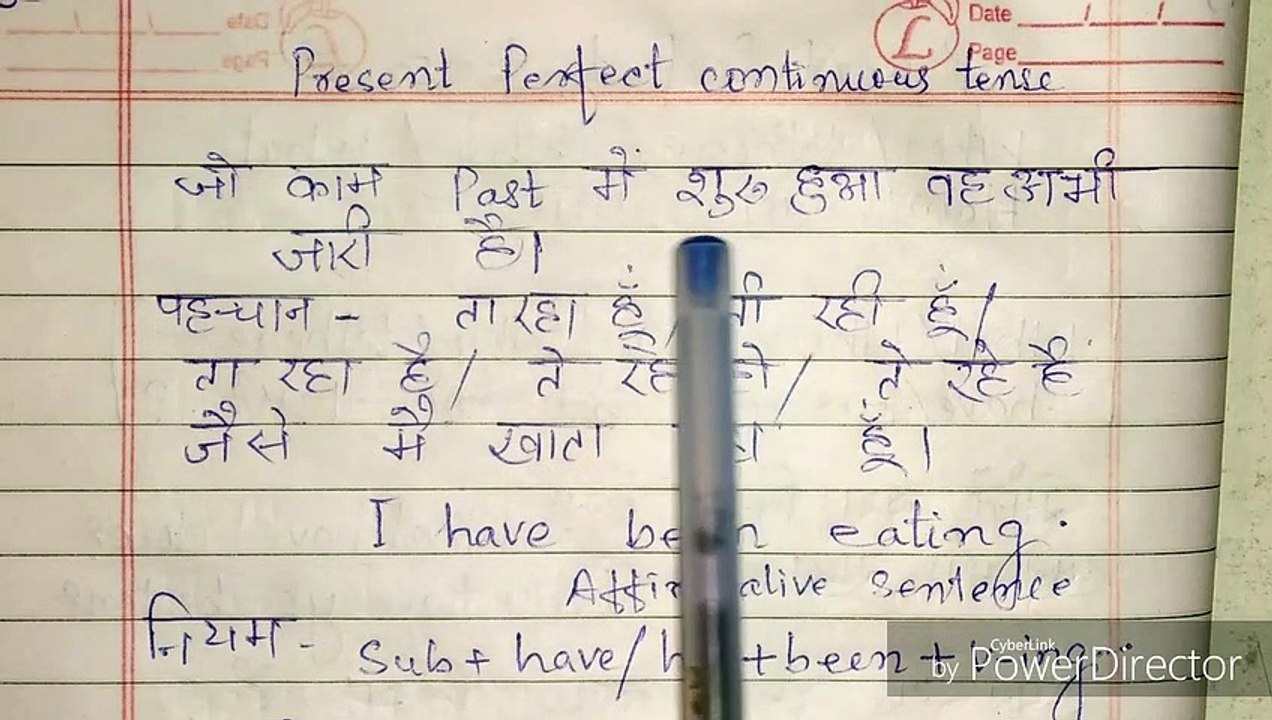 Date
Page
Present Perfect continuous tense
जो काम Past में शुरू हुआ वह अभी
जारी है।
पहचान - ता रहा हूँ, रही हूँ/
ता रहा है/ ते हो/ ते रहे हैं
जैसे मैं खाता हूँ।
I have been eating.
Affirmative Sentence
नियम - Sub + have/ + been + ing.
CyberLink
by PowerDirector